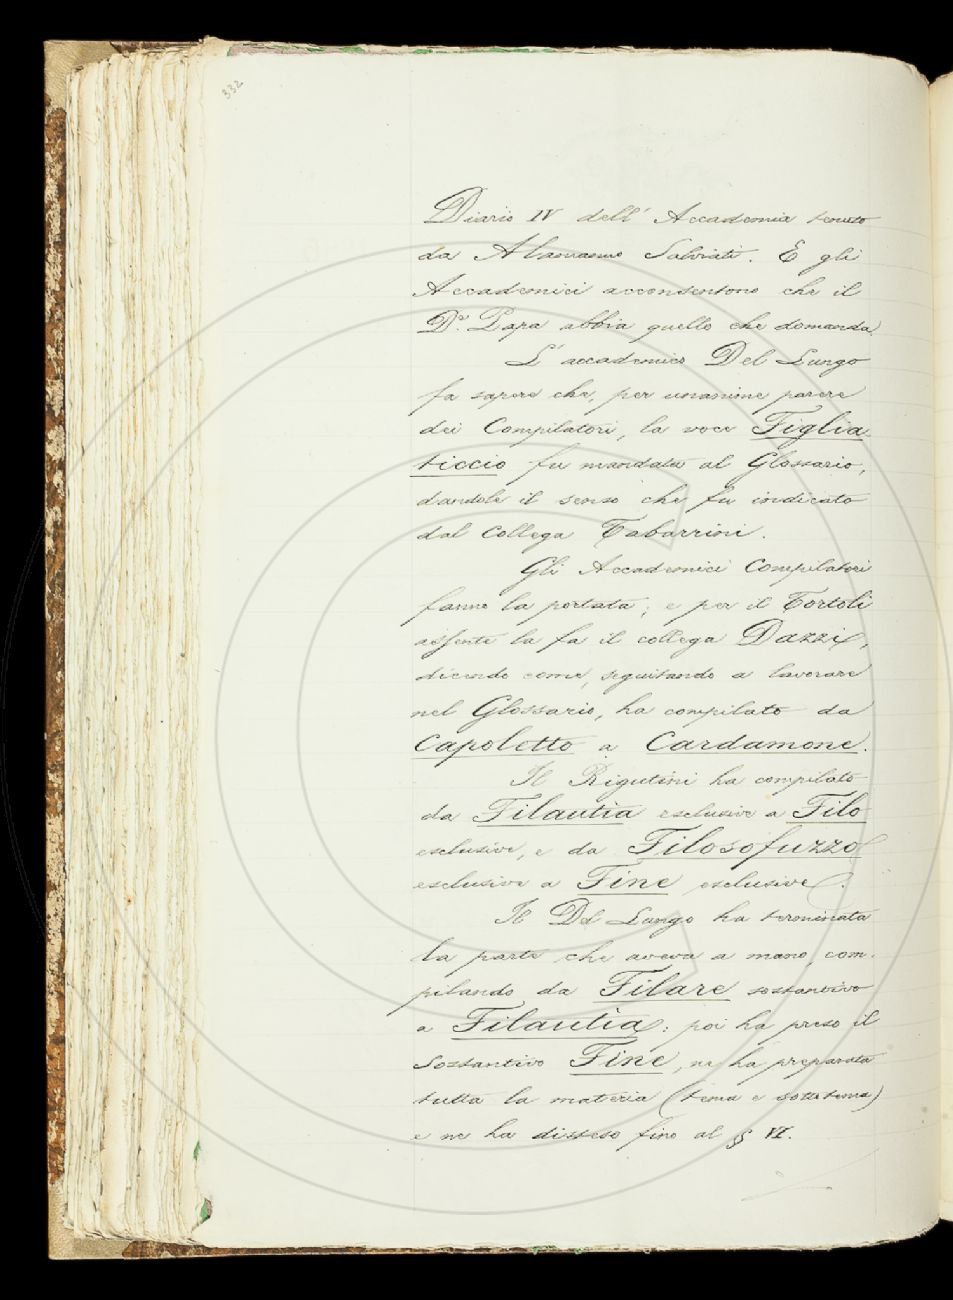 332
Diario IV dell'Accademia tenuto
da Alamanno Salviati. E gli
Accademici acconsentono che il
D.r Papa abbia quello che domanda.
L'accademico Del Lungo
fa sapere che, per unanime parere
dei Compilatori, la voce Figlia-
ticcio fu mandata al Glossario,
dandole il senso che fu indicato
dal Collega Tabarrini.
Gli Accademici Compilatori
fanno la portata; e per il Tortoli
assente la fa il collega Dazzi,
dicendo come, seguitando a lavorare
nel Glossario, ha compilato da
Capoletto a Cardamone.
Il Rigutini ha compilato
da Filautia esclusive a Filo
esclusive, e da Filosofuzzo
esclusive a Fine esclusive.
Il Del Lungo ha terminata
la parte che aveva a mano, com-
pilando da Filare sostantivo
a Filautia; poi ha preso il
Sostantivo Fine, ne ha preparata
tutta la materia (tema e sottotema)
e ne ha disteso fino al § VI.